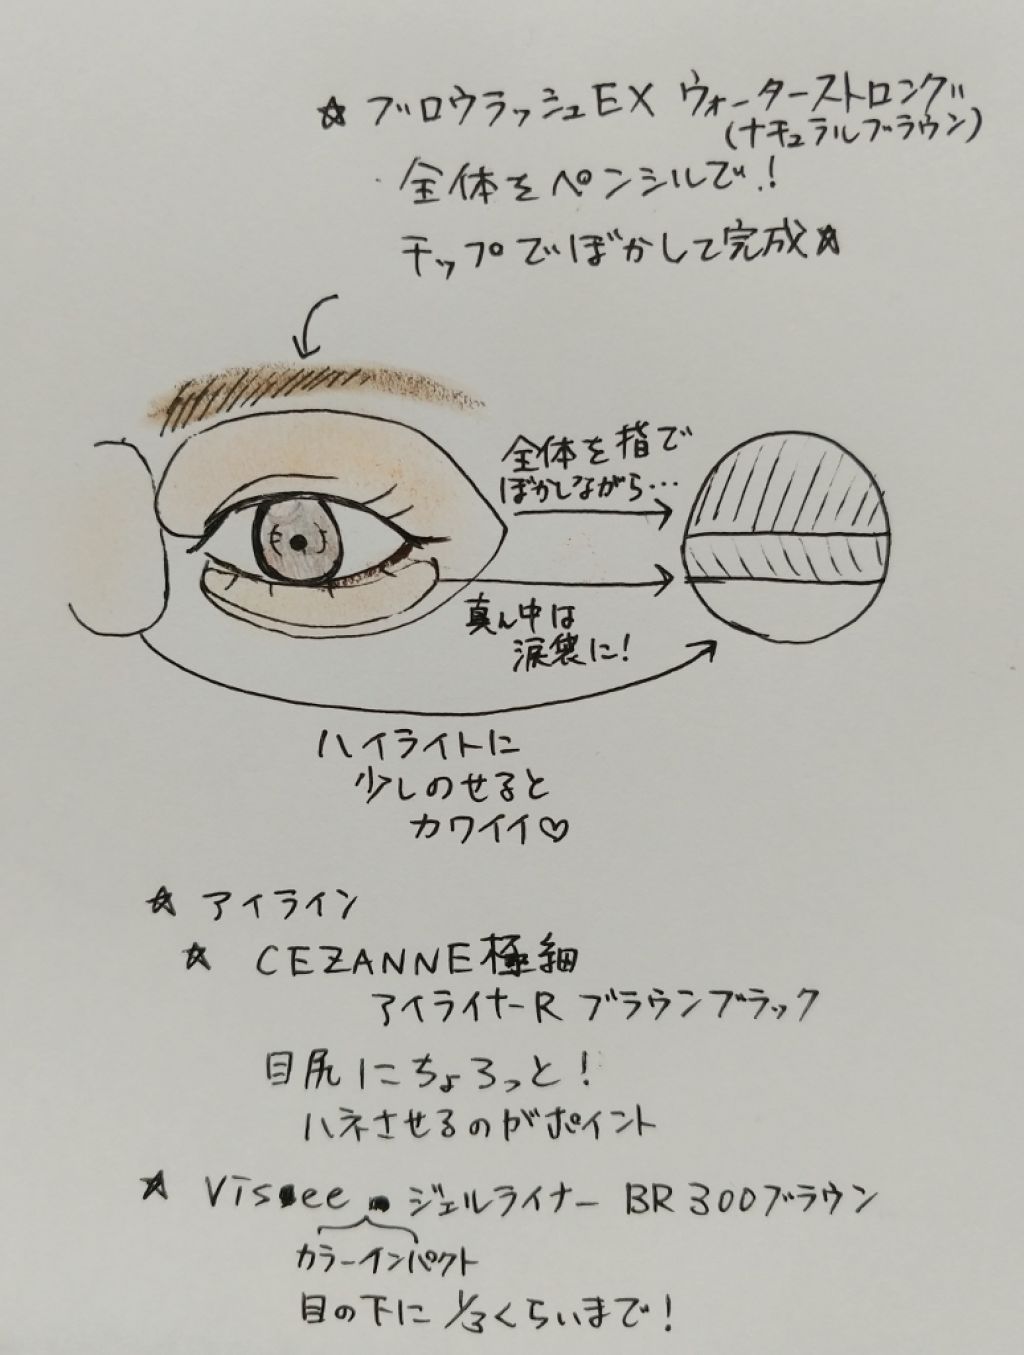 ☆ ブロウラッシュEX ウォーターストロング
(ナチュラルブラウン)
全体をペンシルで!
チップでぼかして完成☆
全体を指で
ぼかしながら…
真ん中は
涙袋に!
ハイライトに
少しのせると
カワイイ♡
☆ アイライン
☆ CEZANNE極細
アイライナーR ブラウンブラック
目尻にちょろっと!
ハネさせるのがポイント
☆ Visee ジェルライナー BR300ブラウン
カラーインパクト
目の下に 1/3くらいまで!